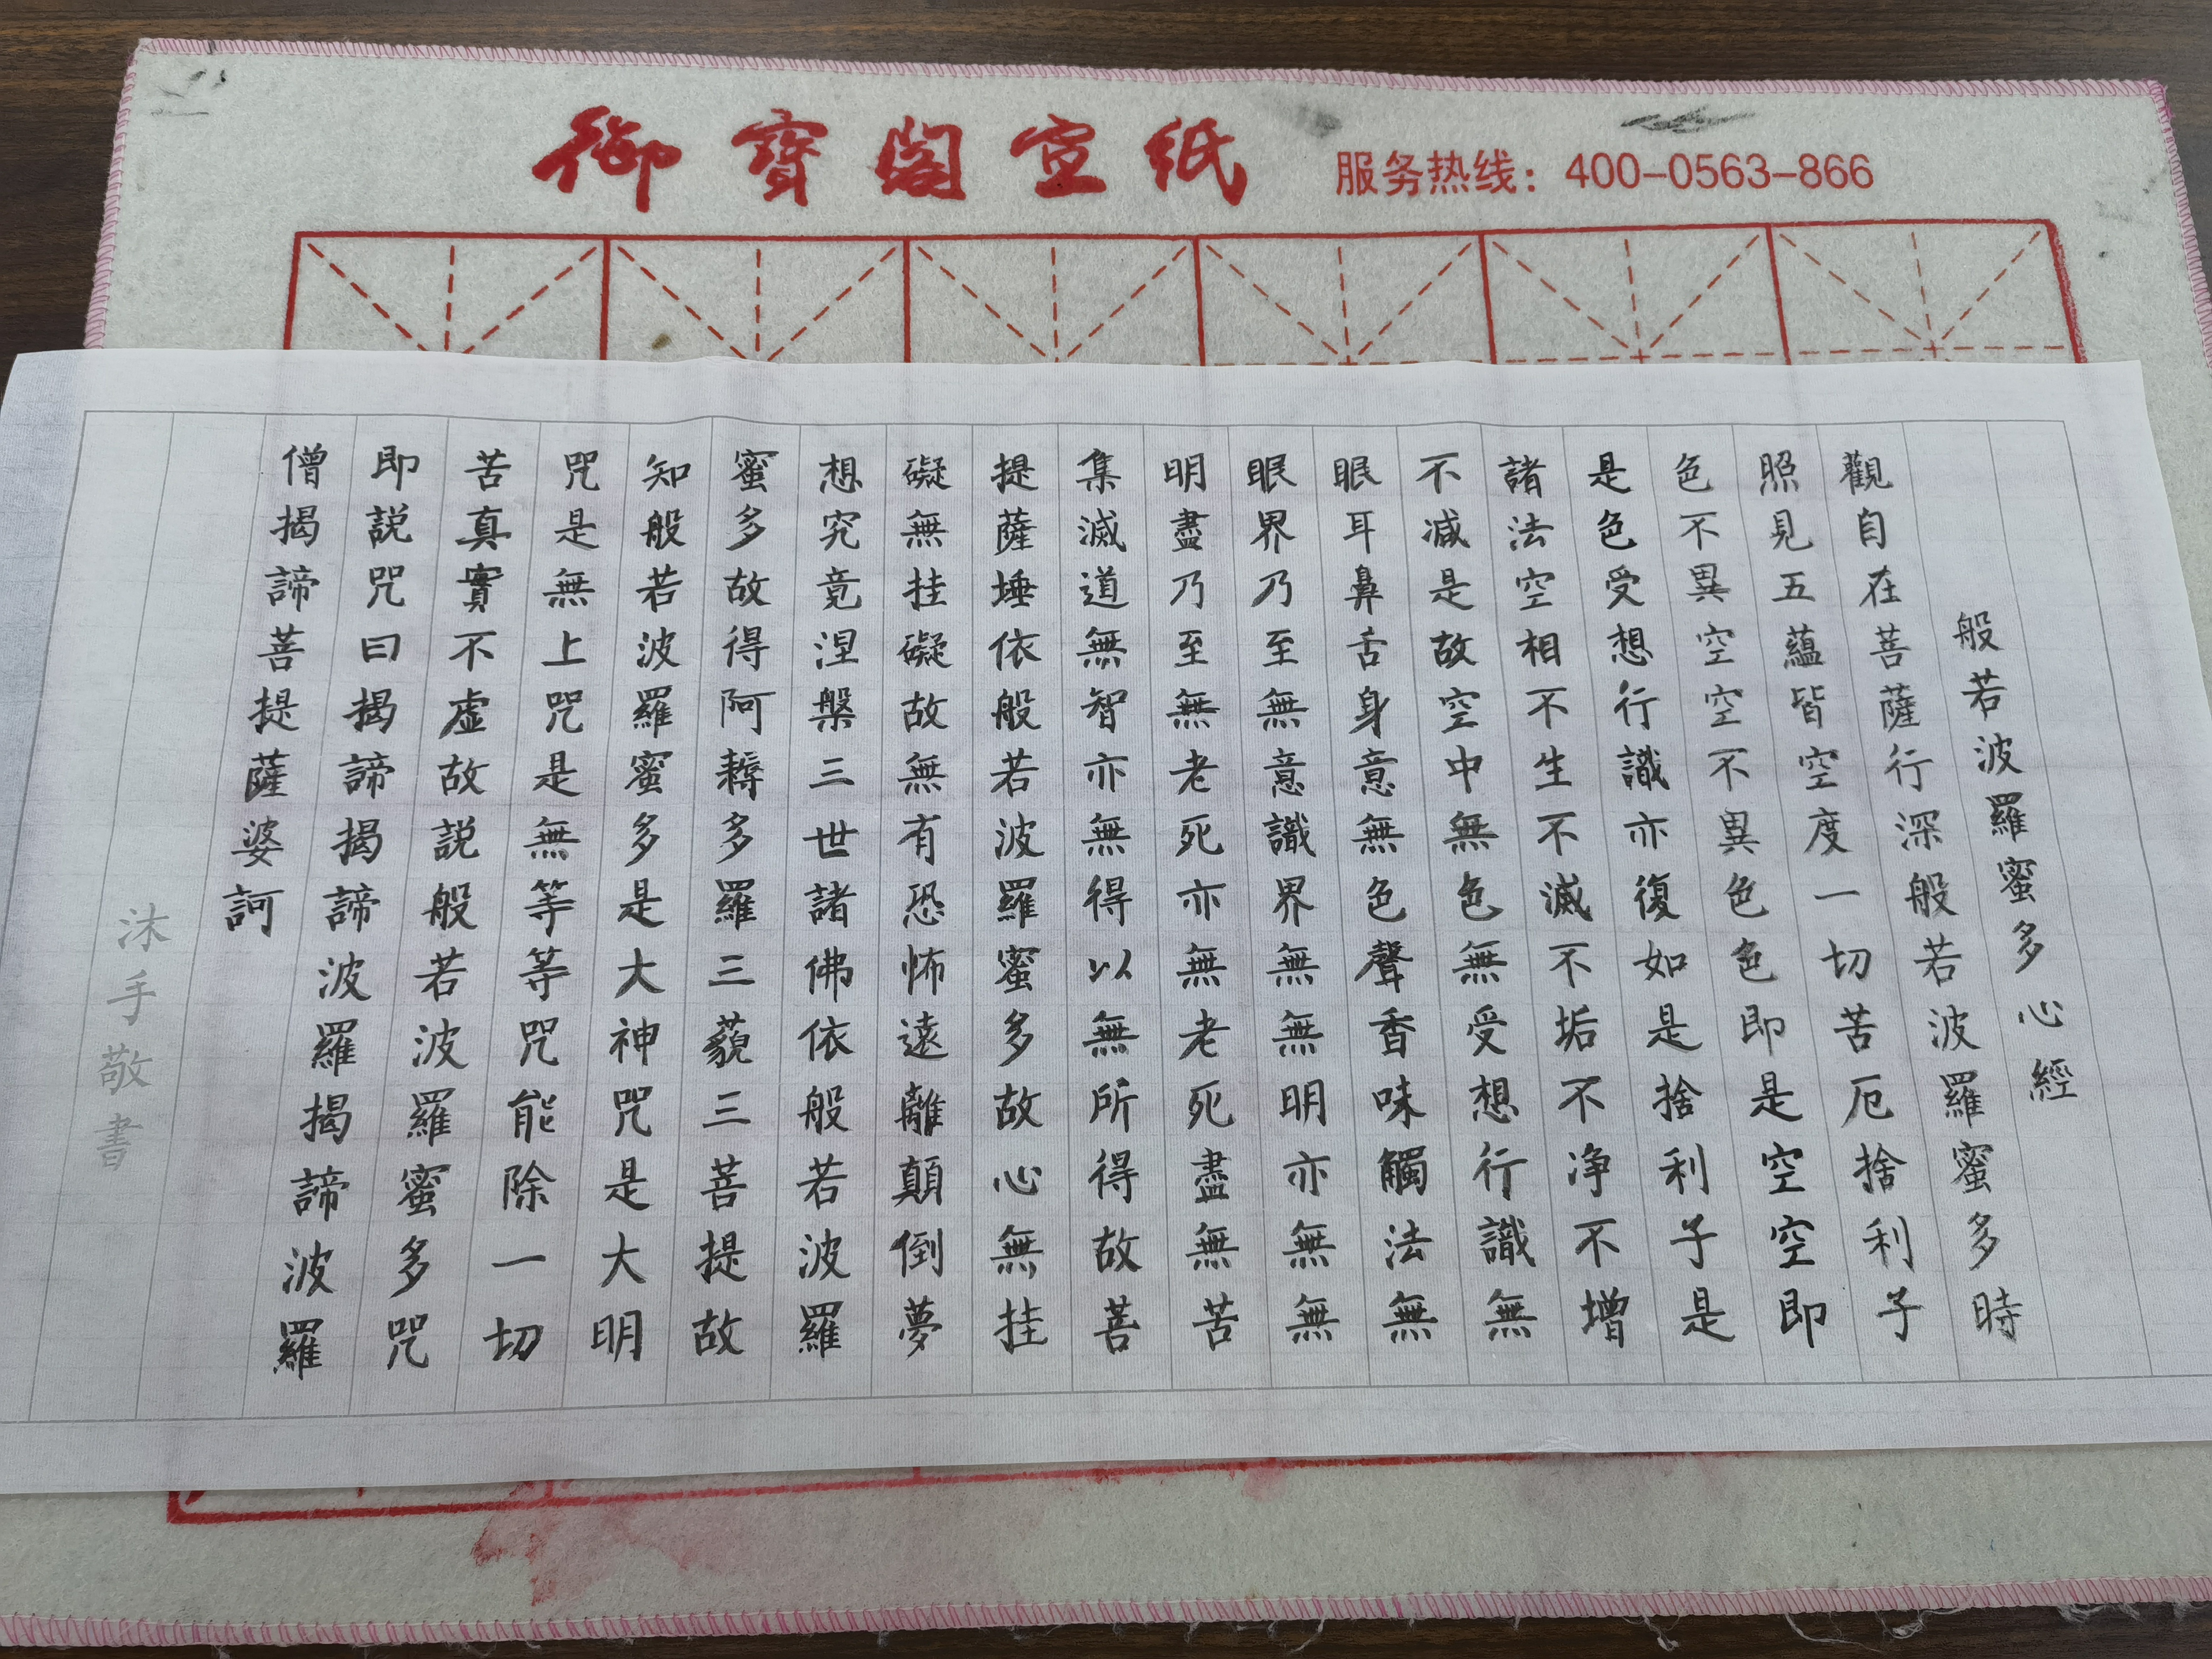 御寶閣宣紙
服务热线：400-0563-866
般若波羅蜜多心經
觀自在菩薩行深般若波羅蜜多時
照見五蘊皆空度一切苦厄捨利子
色不異空空不異色色即是空空即
是色受想行識亦復如是捨利子是
諸法空相不生不滅不垢不净不增
不减是故空中無色無受想行識無
眼耳鼻舌身意無色聲香味觸法無
眼界乃至無意識界無無明亦無無
明盡乃至無老死亦無老死盡無苦
集滅道無智亦無得以無所得故菩
提薩埵依般若波羅蜜多故心無挂
礙無挂礙故無有恐怖遠離顛倒夢
想究竟涅槃三世諸佛依般若波羅
蜜多故得阿耨多羅三藐三菩提故
知般若波羅蜜多是大神咒是大明
咒是無上咒是無等等咒能除一切
苦真實不虛故説般若波羅蜜多咒
即説咒曰揭諦揭諦波羅揭諦波羅
僧揭諦菩提薩婆訶
沐手敬書